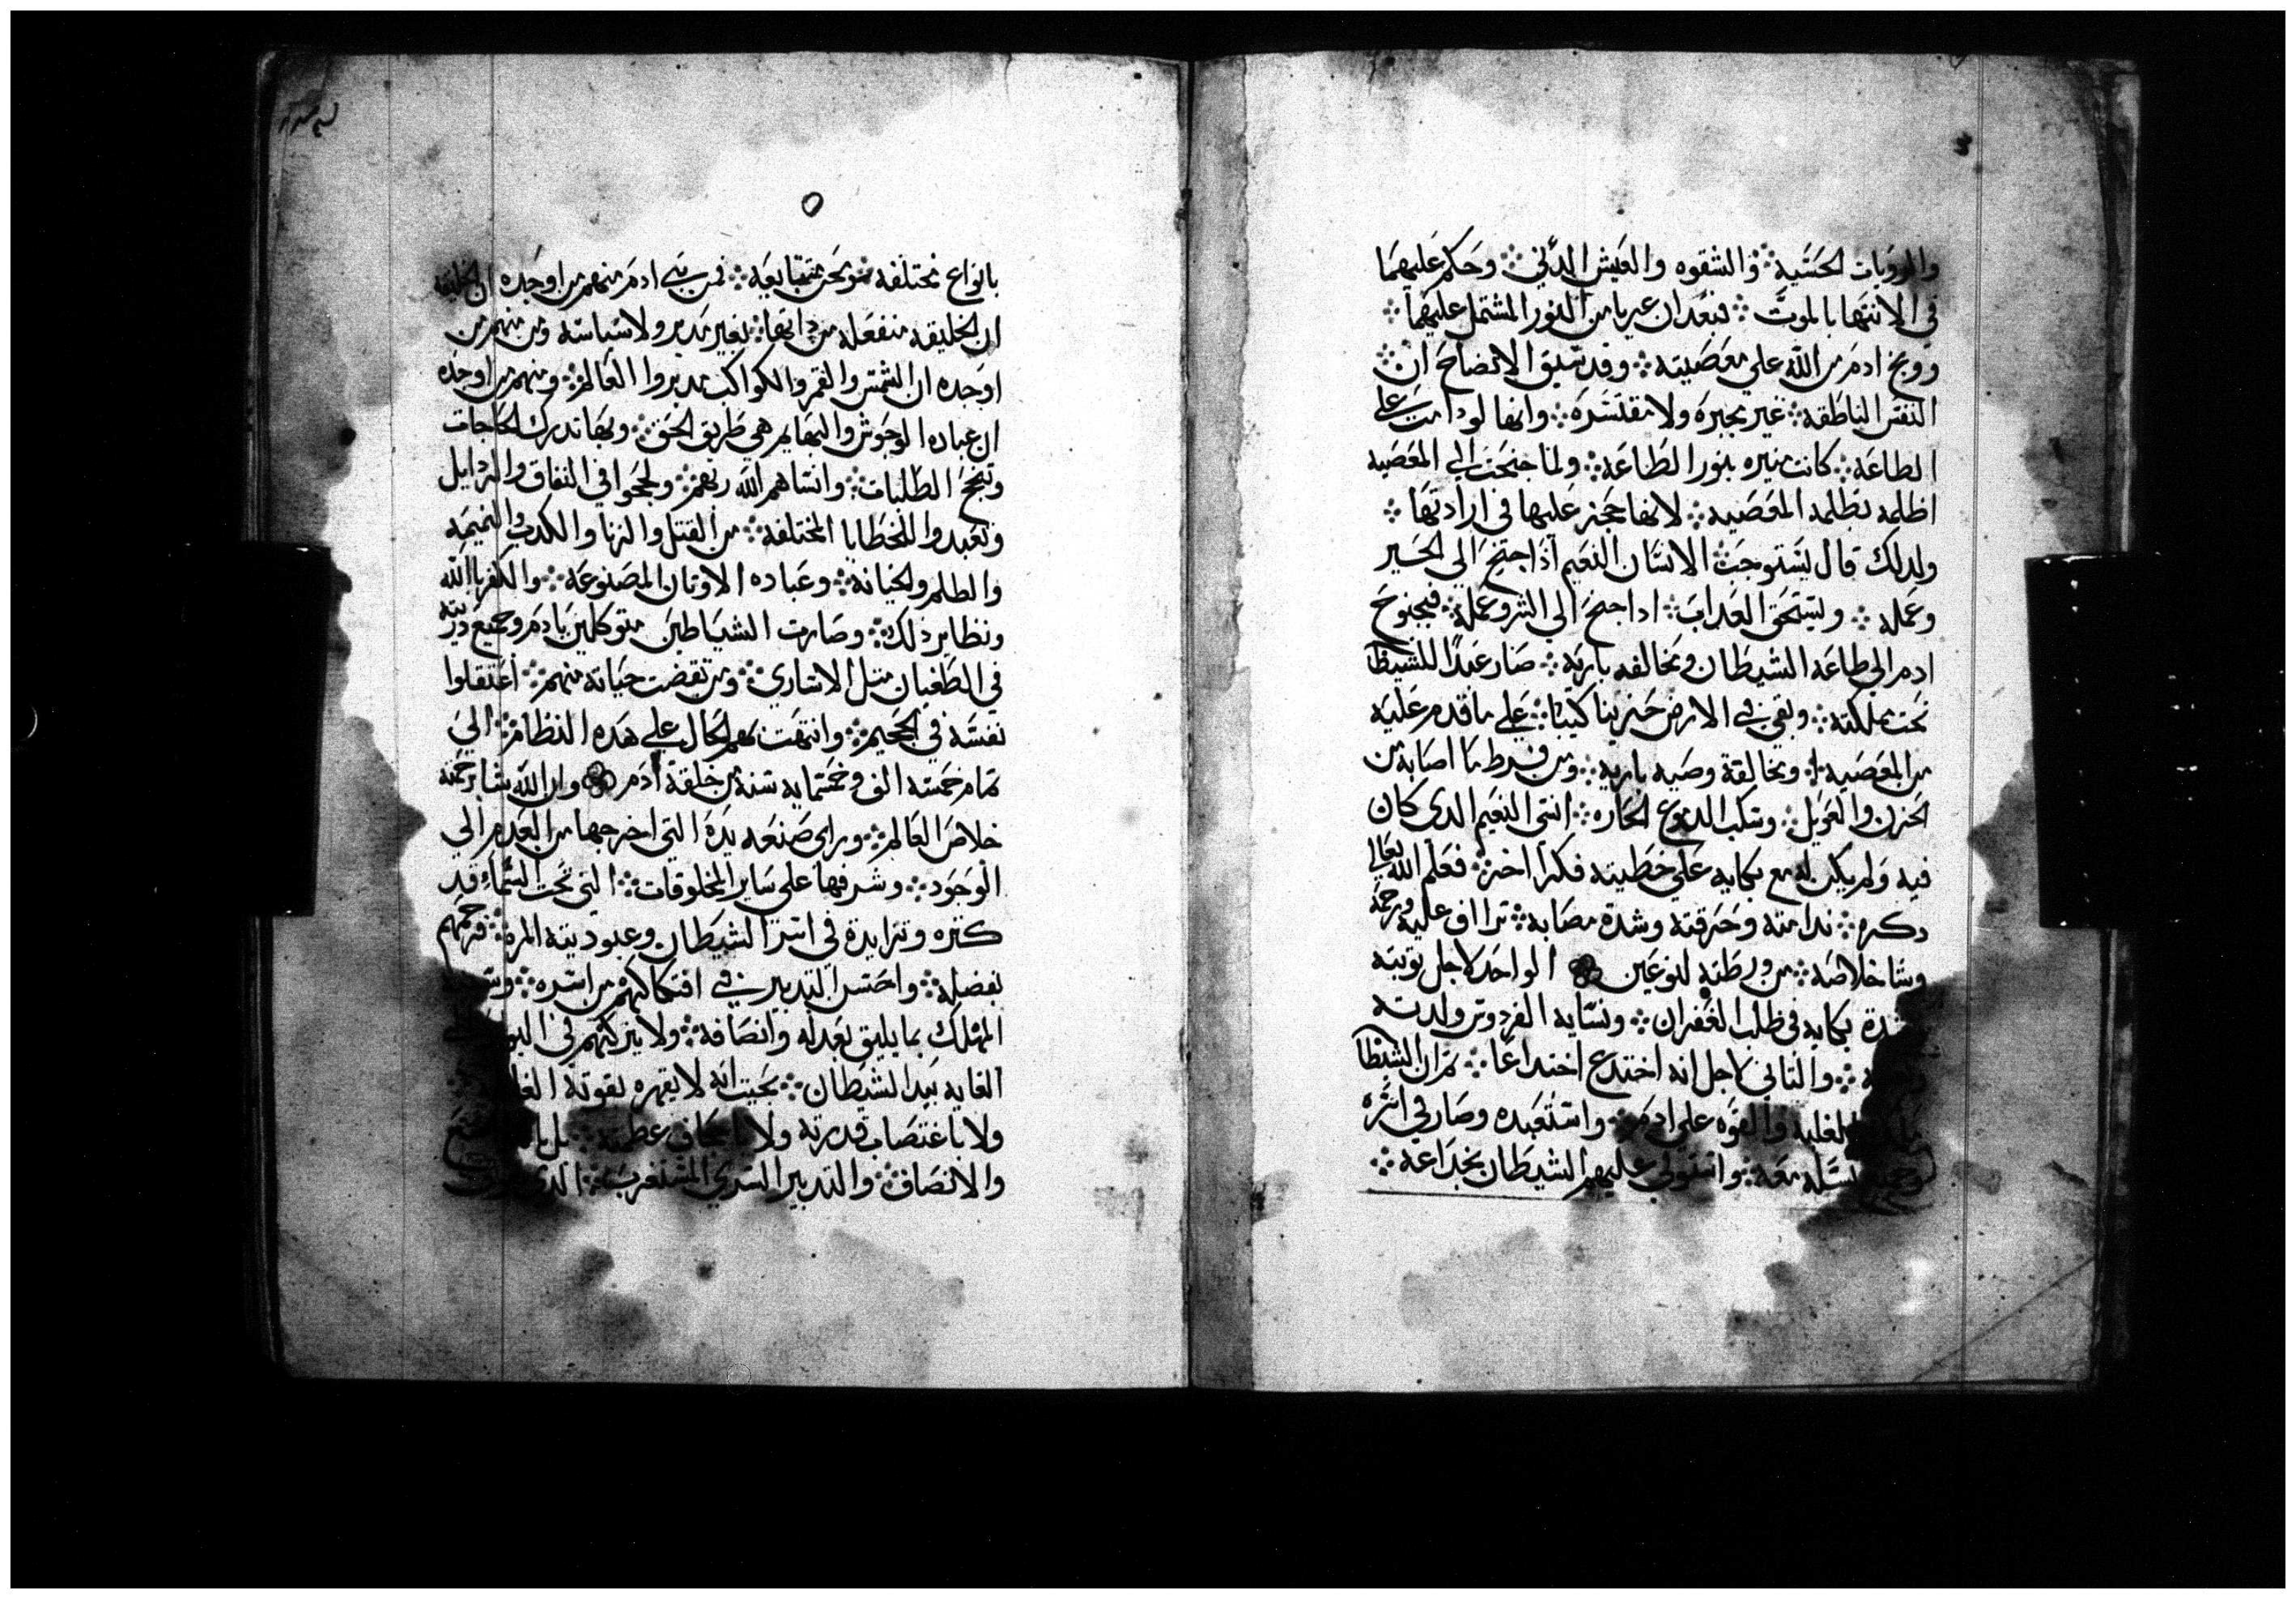 والرويات الحسية ۞ والشقوه والعيش الدني ۞ وحكم عليهما
في الانتها بالموت ۞ فبعد ان عريا من النور المشتمل عليهما ۞
ووبخ ادم من الله علي معصيته ۞ وقد سبق الايضاح ان ۞
النفس الناطقه ۞ غير مجبره ولا مقتسره ۞ وانها لو دامت علي
الطاعه ۞ كانت نيره بنور الطاعه ۞ ولما جنحت الي المعصيه
اظلمه بظلمه المعصيه ۞ لانها حجز عليها في ارادتها ۞
ولدلك قال يستوجب الانسان النعيم اذا جنح الي الخير
وعمله ۞ ويستحق العداب ۞ ادا جنح الي الشر وعمله ۞ فبجنوح
ادم الي طاعه الشيطان ومخالفه باريه ۞ صار عبدا للشيطا
تحت مملكته ۞ وبقي في الارض حزينا كئيبا ۞ علي ما قدم عليه
من المعصيه ۞ ومخالفة وصيه باريه ۞ ومن فرط ما اصابه من
الحزن والعويل ۞ وسكب الدموع الحاره ۞ انسي النعيم الدي كان
فيه ولم يكن له مع بكايه علي خطيته فكرا اخر ۞ فعلم الله تعالي
دكره ۞ ندامته وحرقته وشدة مصابه ۞ تراف عليه ورحمه
وشا خلاصه ۞ من ورطته لنوعين ۞ الواحد لاجل توبته
وشدة بكايه في طلب الغفران ۞ ونسايه الفردوس ولدته
۞ والتاني لاجل انه اختدع اختداعا ۞ تم ان الشيطا
بالغلبه والقوه علي ادم ۞ واستعبده وصار في اسره
وجميع نسله معه ۞ واستولي عليهم الشيطان بخداعه ۞
٥
بانواع مختلفه ۞ ومحن متتابعه ۞ فمن بني ادم منهم من اوجده ان الخليقه
ان الخليقه منفعله من داتها ۞ بغير مدبر ولا سياسه ومن منهم من
اوجده ان الشمس والقمر والكواكب مدبروا العالم ۞ ومنهم من اوجده
ان عباده الوحوش والبهايم هي طريق الحق ۞ وبها تدرك الحاجات
وتنجح الطلبات ۞ وانساهم الله ربهم ۞ ولججوا في النفاق والردايل
وتعبدوا للخطايا المختلفه ۞ من القتل والزنا والكدب والنميمه
والظلم والخيانه ۞ وعباده الاوتان المصنوعه ۞ والكفر بالله
ونظاير ذلك ۞ وصارت الشياطين متوكلين بادم وجميع دريته
في الطغيان متل الاساري ۞ ومن تقضت حياته منهم ۞ اعتقلوا
نفسه في الجحيم ۞ وانتهت بهم الحال علي هده النظام ۞ الي
تمام خمسه الف وخمسمايه سنه من خلقة ادم ۞ وان الله شا برحمته
خلاص العالم ۞ وراي صنعه يده التي اخرجها من العدم الي
الوجود ۞ وشرفها علي ساير المخلوقات ۞ التي تحت السماء قد
كتره وتزايدة في اسر الشيطان وعبوديته المره ۞ فرحمهم
بفضله ۞ واحسن التدبير في افتكاكهم من اسره ۞
المهلك بما يليق بعدله وانصافه ۞ ولا يتركهم في
الغايه بيد الشيطان ۞ بحيت انه لا يقهره بقوته
ولا باغتصاب قدرته ولا باجحاف عظمته ۞
والانصاف ۞ والتدبير السري المستغرب ۞